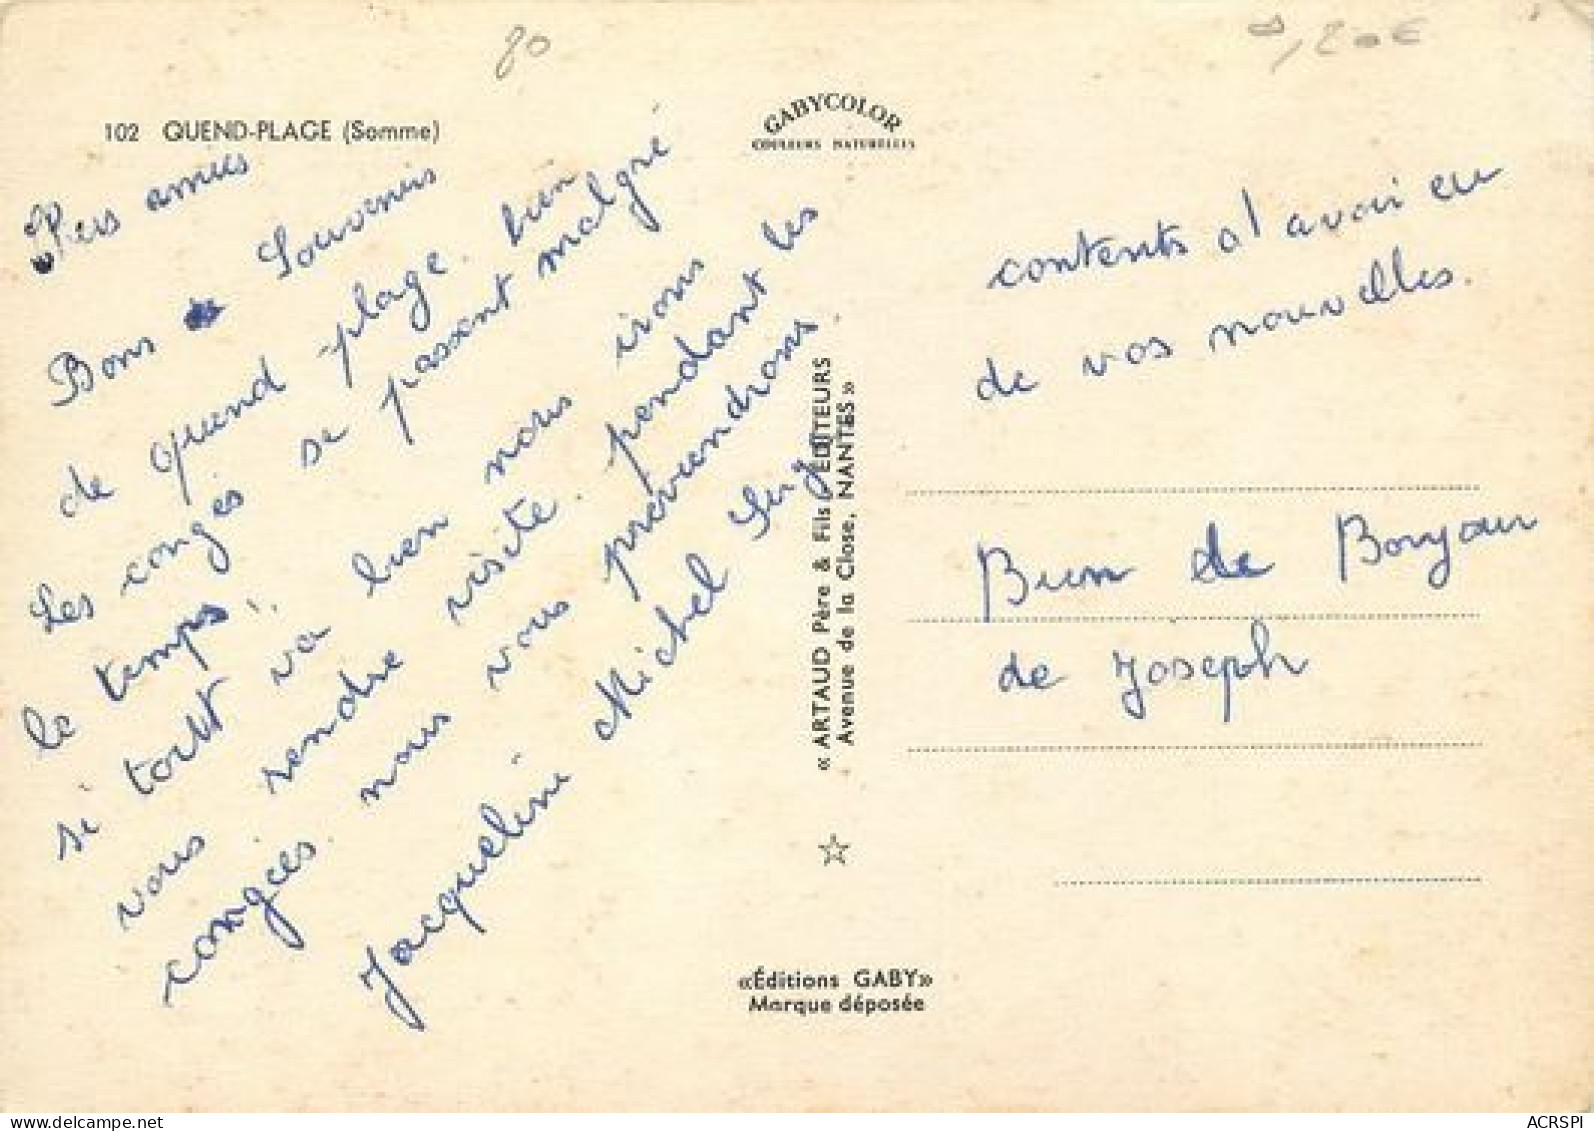 80
0,20 €
102 QUEND-PLAGE (Somme)
GABYCOLOR
COULEURS NATURELLES
Chers amies
Bons Souvenirs
de quend plage. bien
Les congés se passent malgré
le temps.
si tout va bien nous irons
vous rendre visite. pendant les
congées. nous vous préviendrons
Jacqueline Michel Serge
« ARTAUD Père & Fils, ÉDITEURS
Avenue de la Close, NANTES »
«Éditions GABY»
Marque déposée
contents d'avoir eu
de vos nouvelles.
Bien de Bonjour
de Joseph
ACRSPI